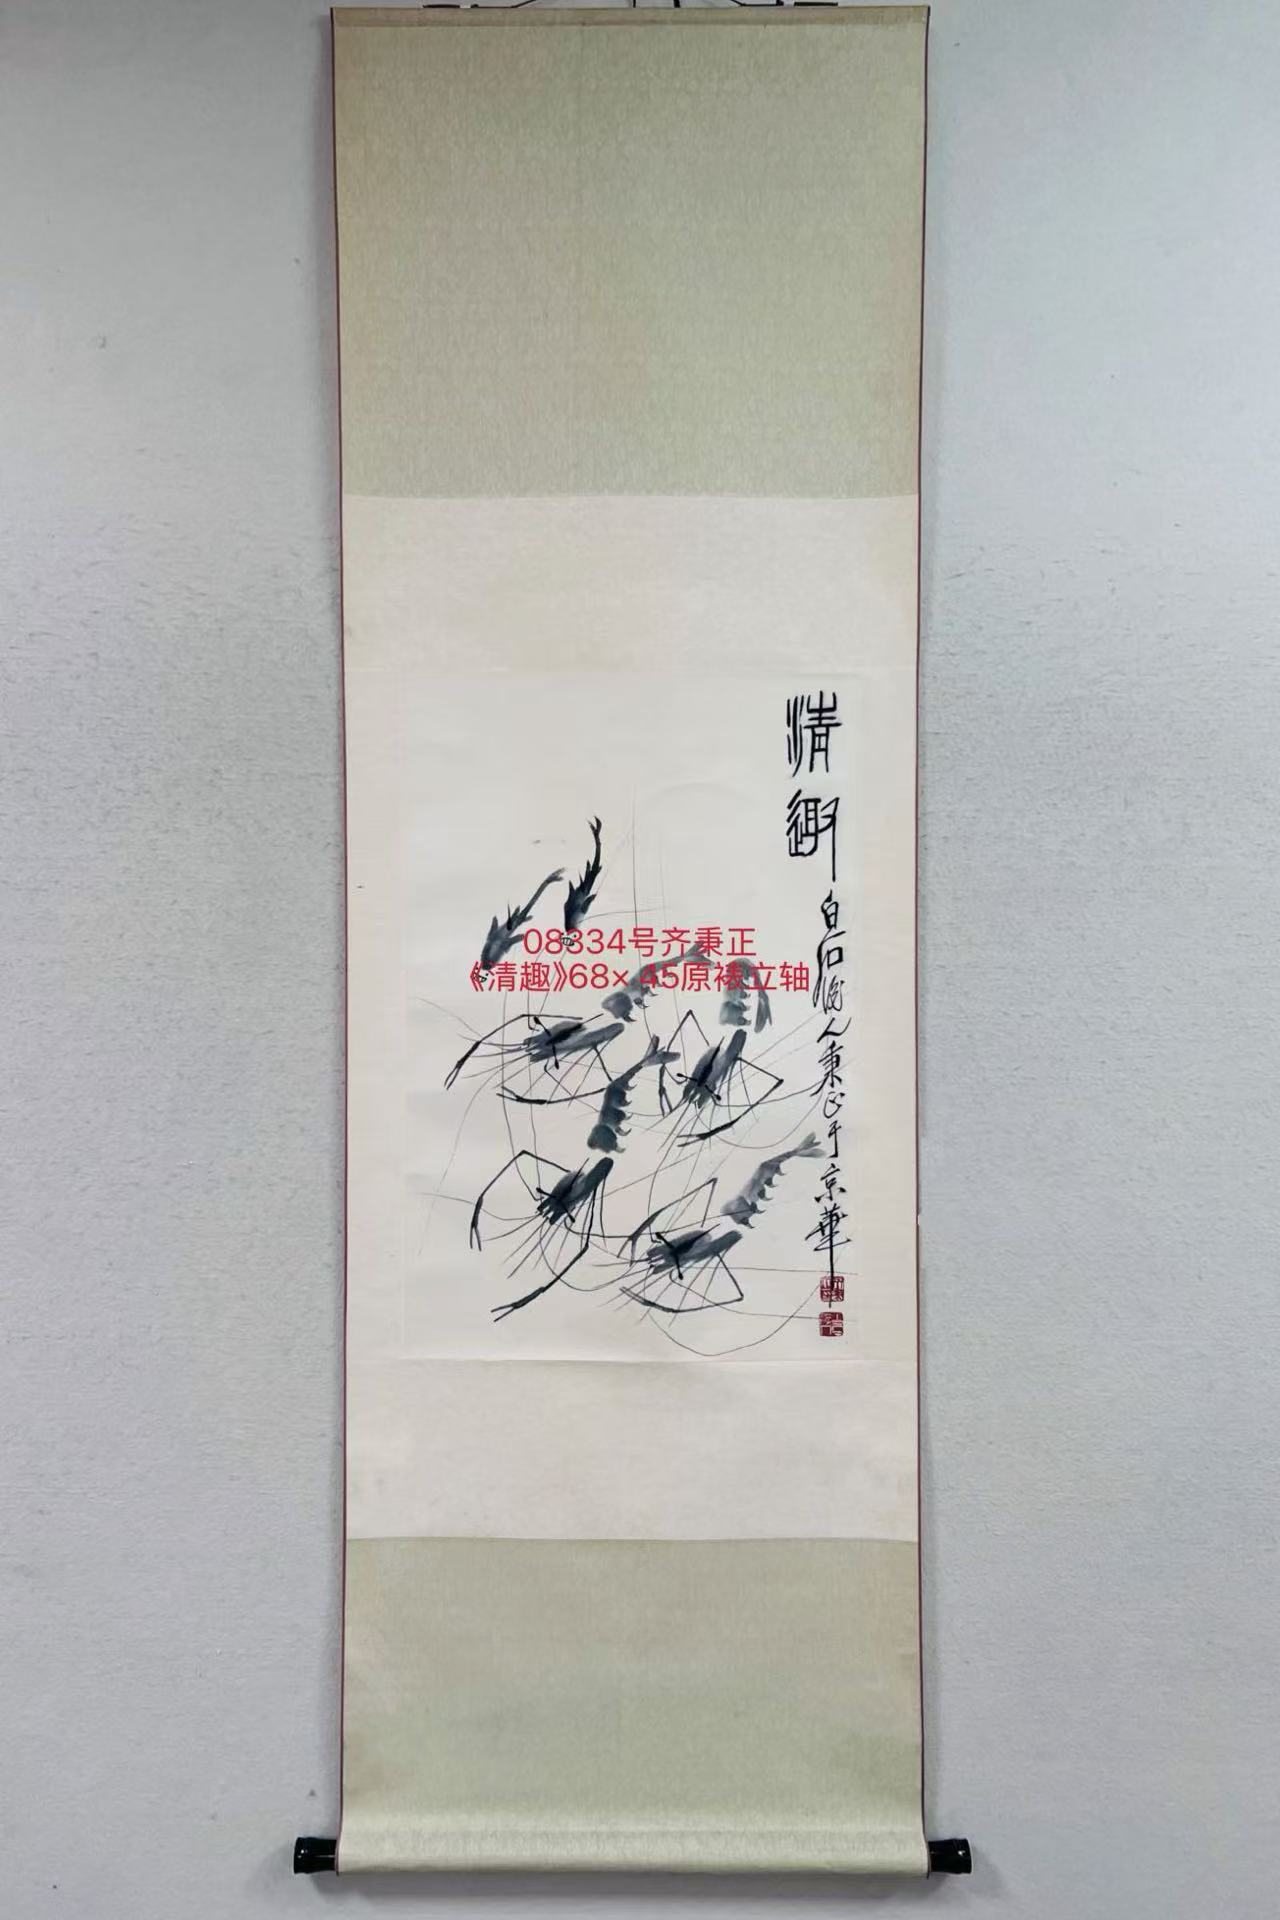 清趣
白石後人秉正于京華
08334号齐秉正
《清趣》68×45原裱立轴